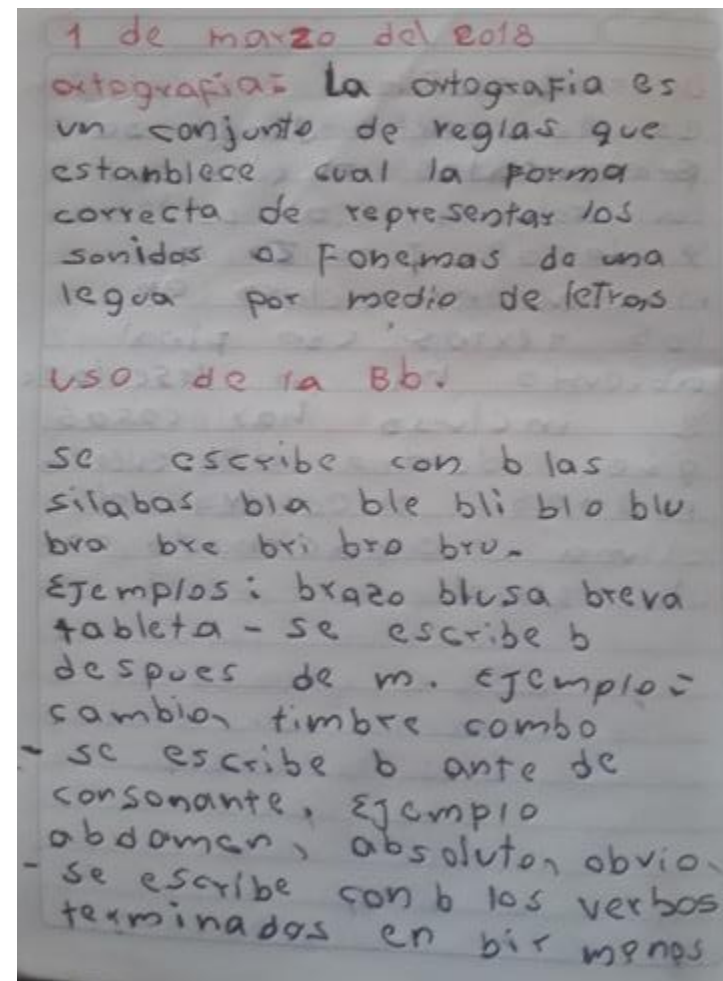 1 de marzo del 2018
ortografia: La ortografia es
un conjunto de reglas que
estanblece cual la forma
correcta de representar los
sonidos o Fonemas de una
legua por medio de letras
uso de la Bb.
se escribe con b las
silabas bla ble bli blo blu
bra bre bri bro bru.
Ejemplos: brazo blusa breva
tableta - se escribe b
despues de m. Ejemplo:
cambio, timbre combo
- se escribe b ante de
consonante, Ejemplo
abdomen, absoluto, obvio.
- se escribe con b los verbos
terminados en bir menos